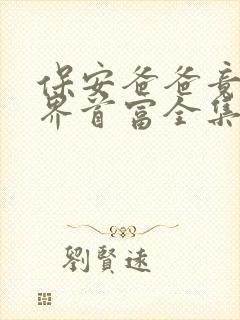 保安爸爸竟
界首富全集
劉賢遠